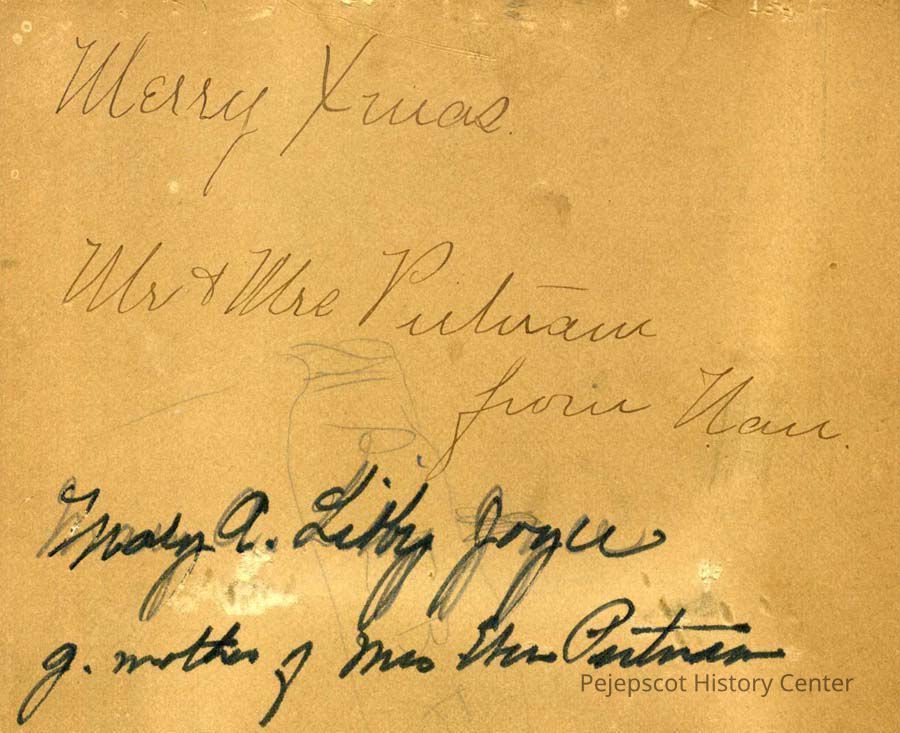 Merry Xmas.
Mr & Mrs Putnam
from Nan.
Mary A. Libby Joyce
g. mother of Mrs Eben Putnam
Pejepscot History Center